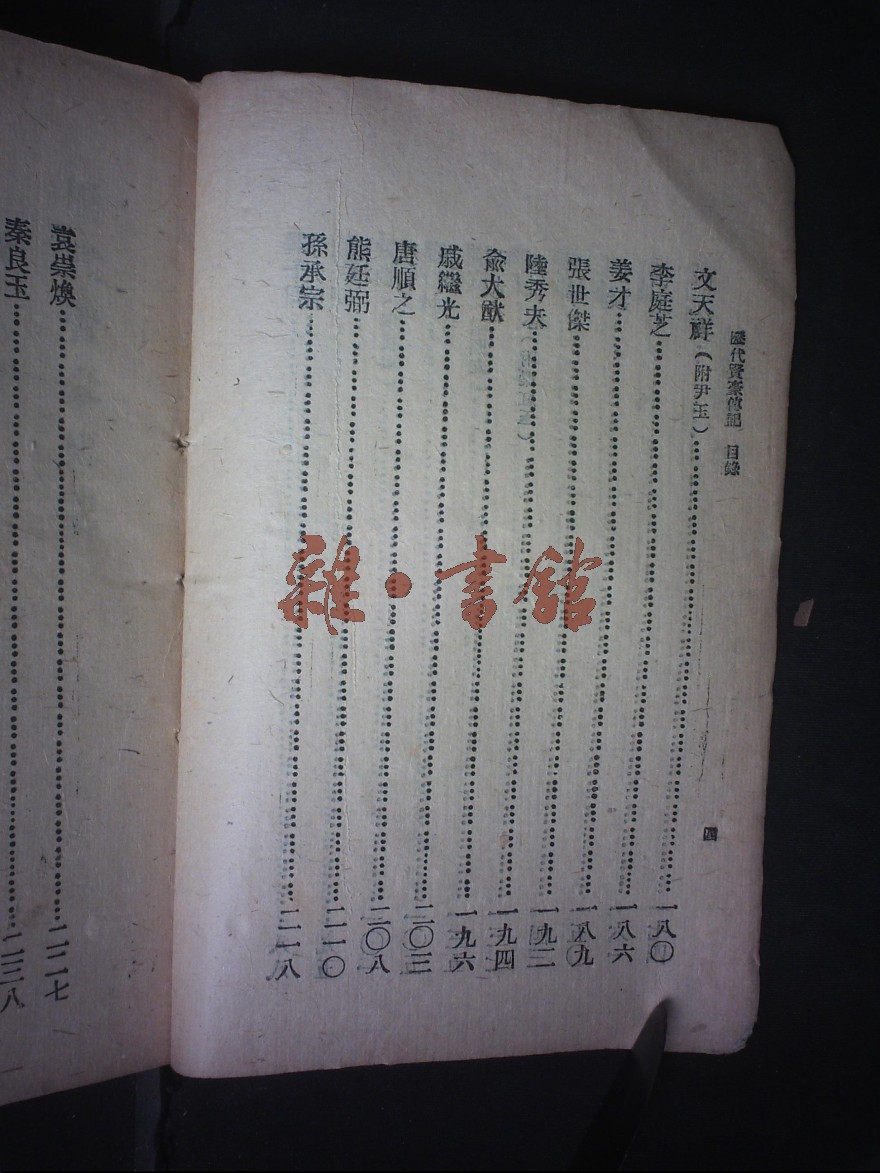 歷代賢豪傳記　目錄　四
文天祥（附尹玉）……一八〇
李庭芝……一八六
姜才……一八九
張世傑……一九二
陸秀夫……一九四
俞大猷……一九六
戚繼光……二〇三
唐順之……二〇八
熊廷弼……二一〇
孫承宗……二一八
袁崇煥……二二七
秦良玉……二三八
雜·書館